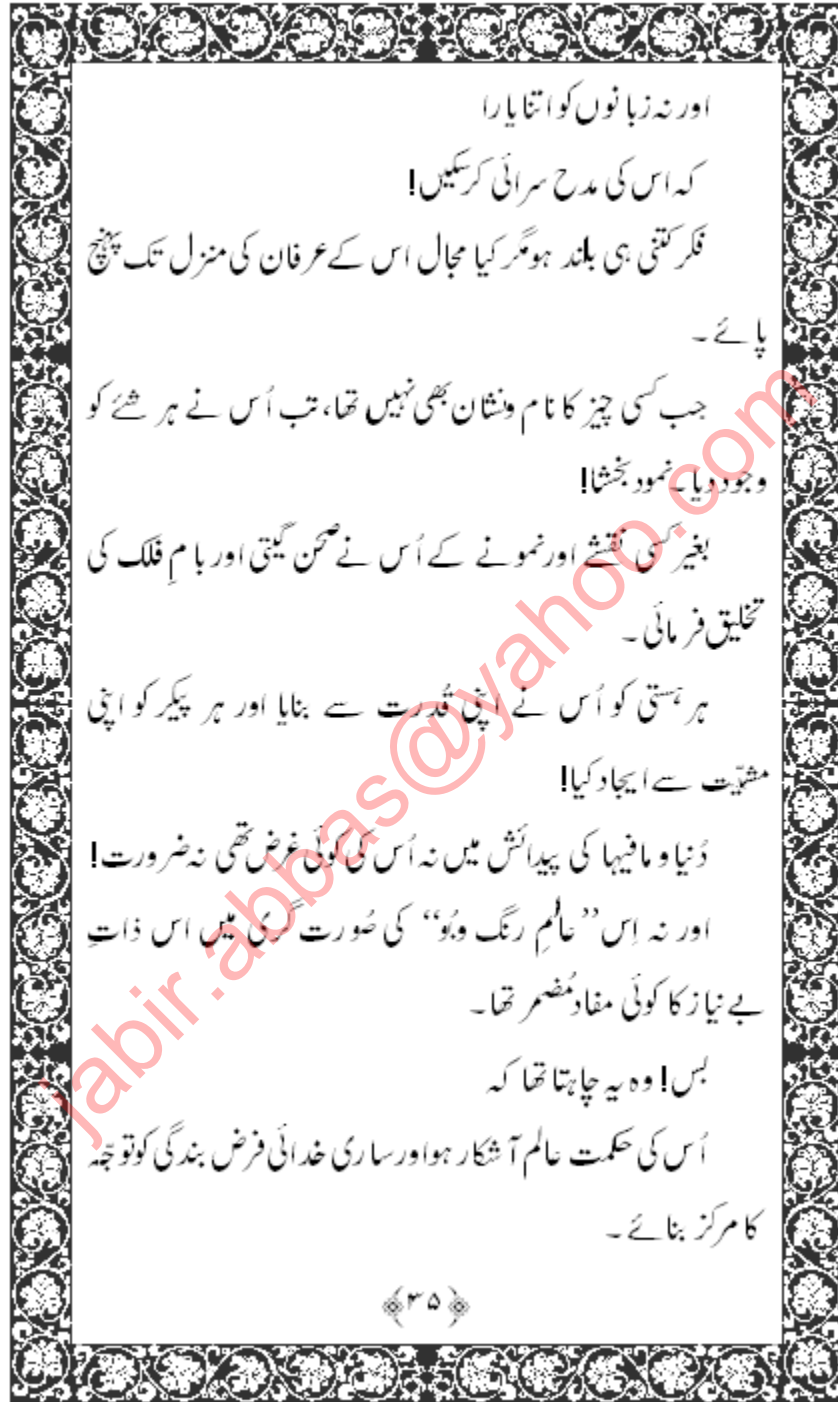 اور نہ زبانوں کو اتنا یارا
کہ اس کی مدح سرائی کرسکیں!
فکر کتنی ہی بلند ہو مگر کیا مجال اس کے عرفان کی منزل تک پہنچ
پائے۔
جب کسی چیز کا نام ونشان بھی نہیں تھا، تب اُس نے ہر شئے کو
وجود دیا۔ نمود بخشا!
بغیر کسی نقشے اور نمونے کے اُس نے صحن گیتی اور بامِ فلک کی
تخلیق فرمائی۔
ہر ہستی کو اُس نے اپنی قُدرت سے بنایا اور ہر پیکر کو اپنی
مشیّت سے ایجاد کیا!
دُنیا و مافیہا کی پیدائش میں نہ اُس کی کوئی غرض تھی نہ ضرورت!
اور نہ اِس ’’عالمِ رنگ وبُو‘‘ کی صُورت گری میں اس ذاتِ
بے نیاز کا کوئی مفاد مُضمر تھا۔
بس! وہ یہ چاہتا تھا کہ
اُس کی حکمت عالم آشکار ہو اور ساری خدائی فرض بندگی کو توجّہ
کا مرکز بنائے۔
﴿۳۵﴾
jabir.abbas@yahoo.com